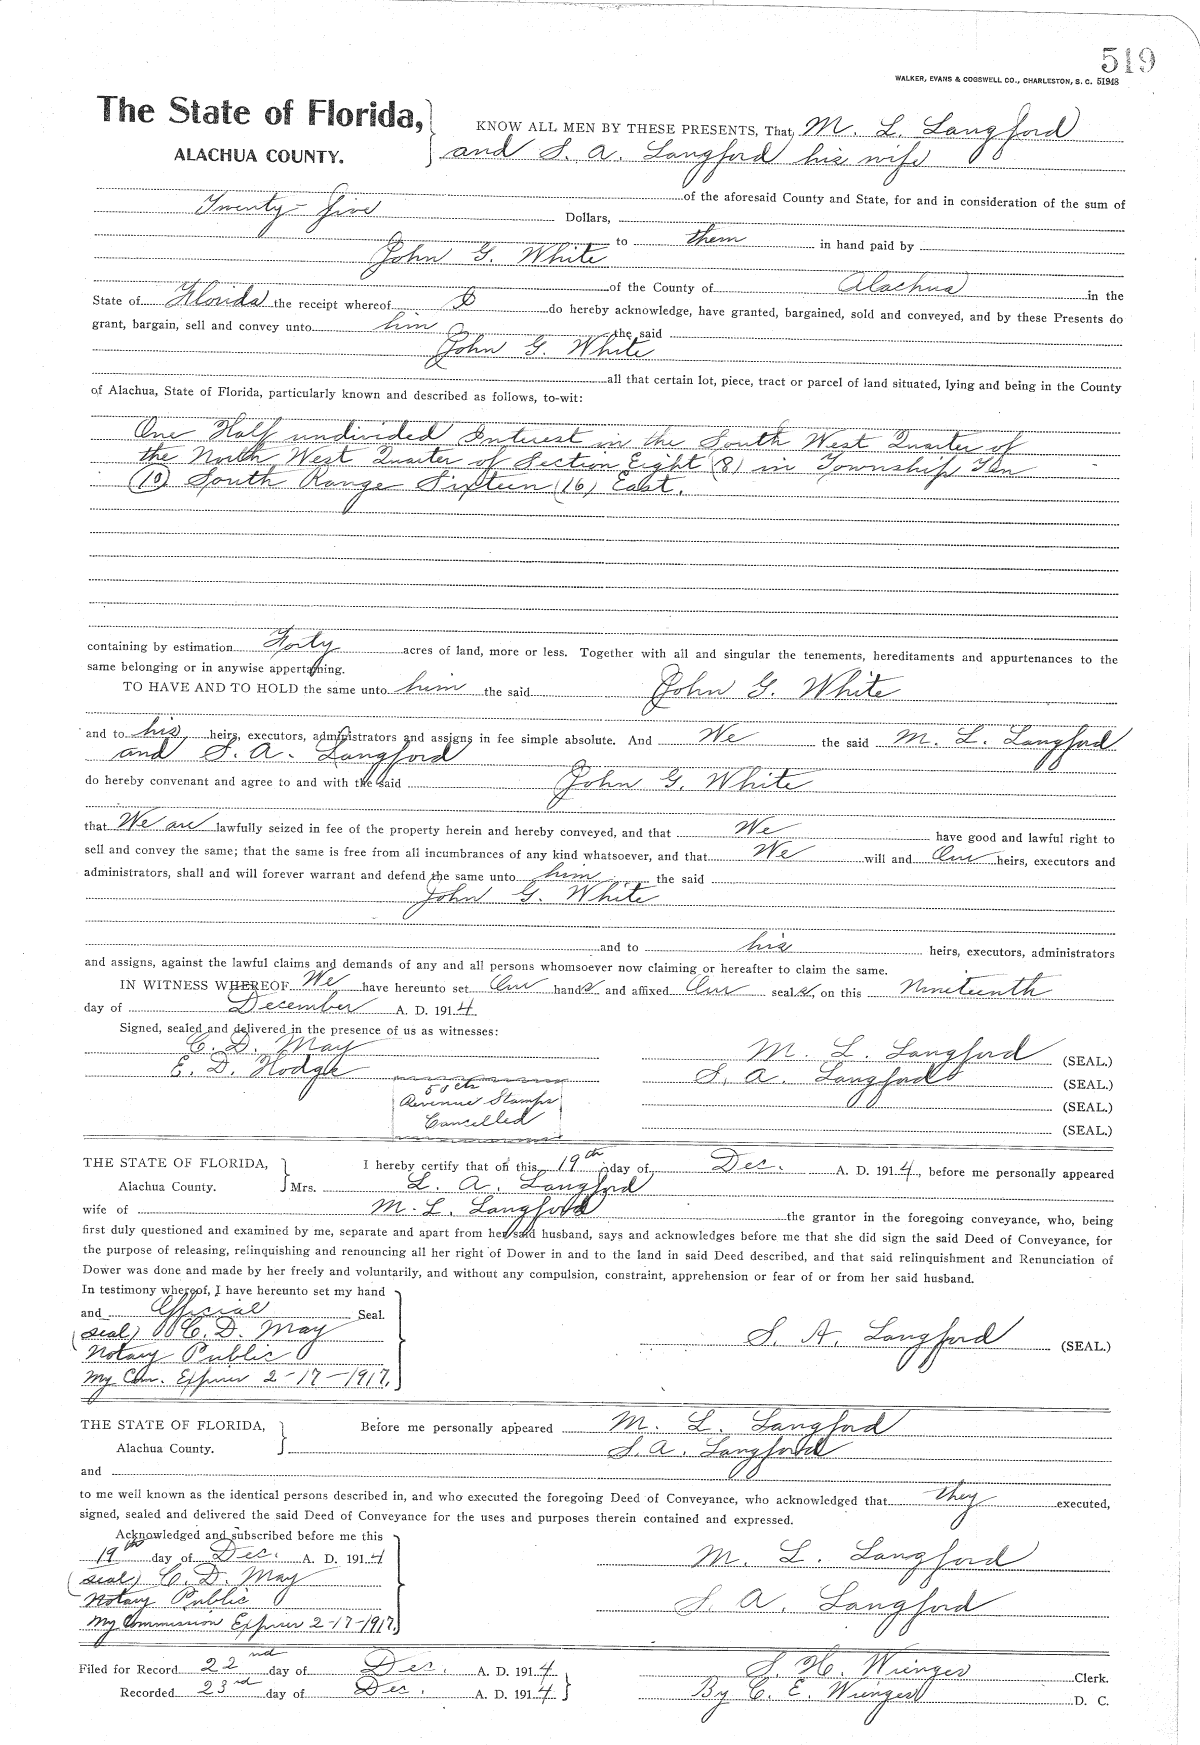 519
WALKER, EVANS & COGSWELL CO., CHARLESTON, S. C. 51948
The State of Florida,
ALACHUA COUNTY.
KNOW ALL MEN BY THESE PRESENTS, That M. L. Langford
and S. A. Langford his wife
of the aforesaid County and State, for and in consideration of the sum of
Twenty-five Dollars,
to them in hand paid by
John G. White
of the County of Alachua in the
State of Florida the receipt whereof do hereby acknowledge, have granted, bargained, sold and conveyed, and by these Presents do
grant, bargain, sell and convey unto him the said
John G. White
all that certain lot, piece, tract or parcel of land situated, lying and being in the County
of Alachua, State of Florida, particularly known and described as follows, to-wit:
One Half undivided Interest in the South West Quarter of
the North West Quarter of Section Eight (8) in Township Ten
(10) South Range Sixteen (16) East.
containing by estimation Forty acres of land, more or less. Together with all and singular the tenements, hereditaments and appurtenances to the
same belonging or in anywise appertaining.
TO HAVE AND TO HOLD the same unto him the said John G. White
and to his heirs, executors, administrators and assigns in fee simple absolute. And We the said M. L. Langford
and S. A. Langford
do hereby convenant and agree to and with the said John G. White
that We are lawfully seized in fee of the property herein and hereby conveyed, and that We have good and lawful right to
sell and convey the same; that the same is free from all incumbrances of any kind whatsoever, and that We will and Our heirs, executors and
administrators, shall and will forever warrant and defend the same unto him the said
John G. White
and to his heirs, executors, administrators
and assigns, against the lawful claims and demands of any and all persons whomsoever now claiming or hereafter to claim the same.
IN WITNESS WHEREOF We have hereunto set Our hands and affixed Our seals, on this Nineteenth
day of December A. D. 1914.
Signed, sealed and delivered in the presence of us as witnesses:
C. D. May
E. D. Hodge
M. L. Langford (SEAL.)
S. A. Langford (SEAL.)
(SEAL.)
(SEAL.)
50 cts
Revenue Stamps
Cancelled
THE STATE OF FLORIDA,
Alachua County.
I hereby certify that on this 19th day of Dec. A. D. 1914, before me personally appeared
Mrs. L. A. Langford
wife of M. L. Langford the grantor in the foregoing conveyance, who, being
first duly questioned and examined by me, separate and apart from her said husband, says and acknowledges before me that she did sign the said Deed of Conveyance, for
the purpose of releasing, relinquishing and renouncing all her right of Dower in and to the land in said Deed described, and that said relinquishment and Renunciation of
Dower was done and made by her freely and voluntarily, and without any compulsion, constraint, apprehension or fear of or from her said husband.
In testimony whereof, I have hereunto set my hand
and Official Seal.
(seal) C. D. May
Notary Public
My Com. Expires 2-17-1917.
S. A. Langford (SEAL.)
THE STATE OF FLORIDA,
Alachua County.
Before me personally appeared M. L. Langford
S. A. Langford
and
to me well known as the identical persons described in, and who executed the foregoing Deed of Conveyance, who acknowledged that they executed,
signed, sealed and delivered the said Deed of Conveyance for the uses and purposes therein contained and expressed.
Acknowledged and subscribed before me this
19th day of Dec. A. D. 1914
(seal) C. D. May
Notary Public
My Commission Expires 2-17-1917.
M. L. Langford
S. A. Langford
Filed for Record 22nd day of Dec. A. D. 1914.
Recorded 23rd day of Dec. A. D. 1914
S. H. Wienges Clerk.
By C. E. Wienges D. C.